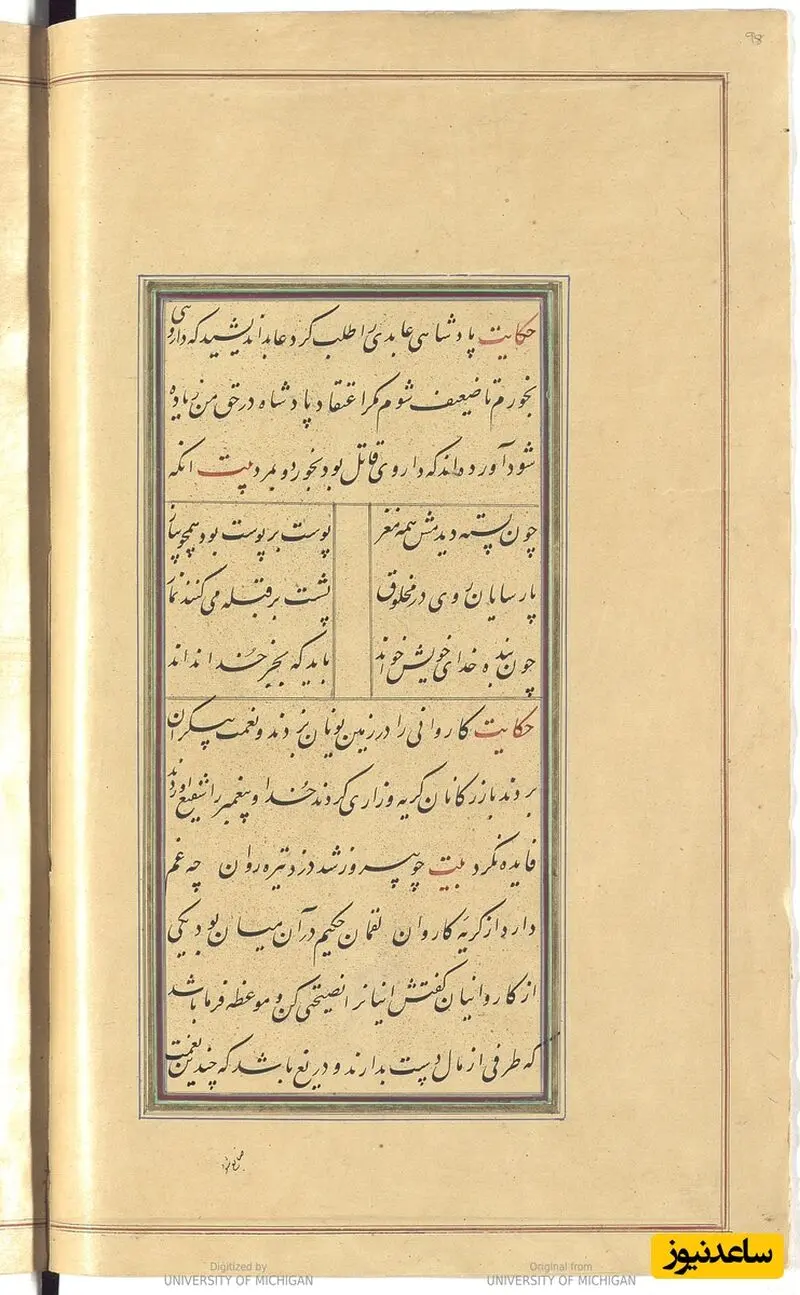 ۹۸
حکایت پادشاهی عابدی را طلب کرد عابد اندیشید که داروی
بخورم تا ضعیف شوم مگر اعتقاد پادشاه در حق من زیاده
شود آورده اند که داروی قاتل بود بخورد و بمرد بیت انکه
چون پسته دیدمش همه مغز پوست بر پوست بود همچو پیاز
پارسایان روی در مخلوق پشت بر قبله می کنند نماز
چون بنده خدای خویش خواند باید که بجز خدا نداند
حکایت کاروانی را در زمین یونان بزدند و نعمت بیکران
بردند بازرکانان کریه و زاری کردند خدا و پیغمبر را شفیع آوردند
فایده نکرد بیت چو پیروز شد دزد تیره روان چه غم
دارد از کریه کاروان لقمان حکیم در آن میان بود یکی
از کاروانیان کفتش اینانرا نصیحتی کن و موعظه فرما باشد
که طرفی از مال دست بدارند و دریغ باشد که چندین نعمت
ضایع شود
Digitized by
UNIVERSITY OF MICHIGAN
Original from
UNIVERSITY OF MICHIGAN
ساعدنیوز